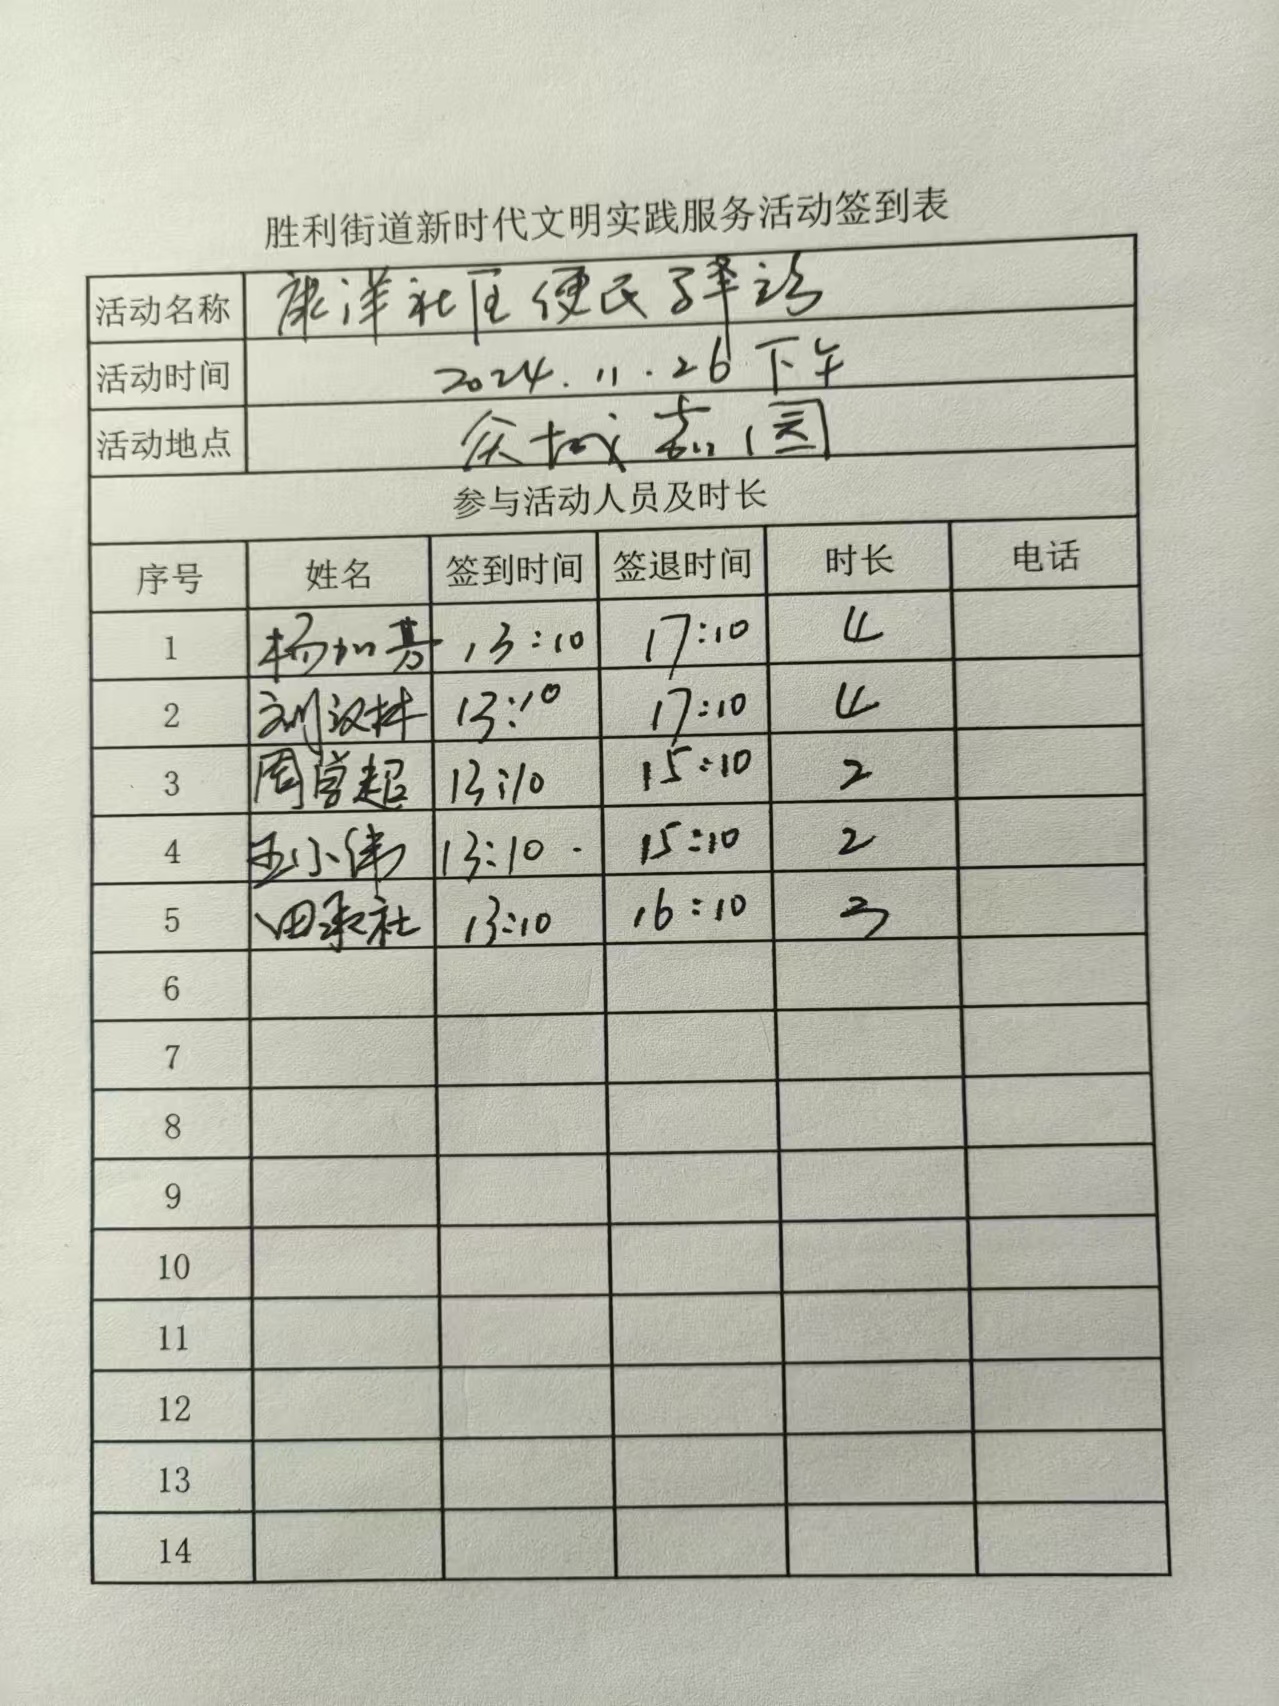 胜利街道新时代文明实践服务活动签到表
活动名称 康洋社区便民驿站
活动时间 2024.11.26下午
活动地点 众城嘉园
参与活动人员及时长
序号 姓名 签到时间 签退时间 时长 电话
1 13:10 17:10 4
2 刘汉林 13:10 17:10 4
3 13:10 15:10 2
4 王小伟 13:10 15:10 2
5 田承社 13:10 16:10 3
6
7
8
9
10
11
12
13
14